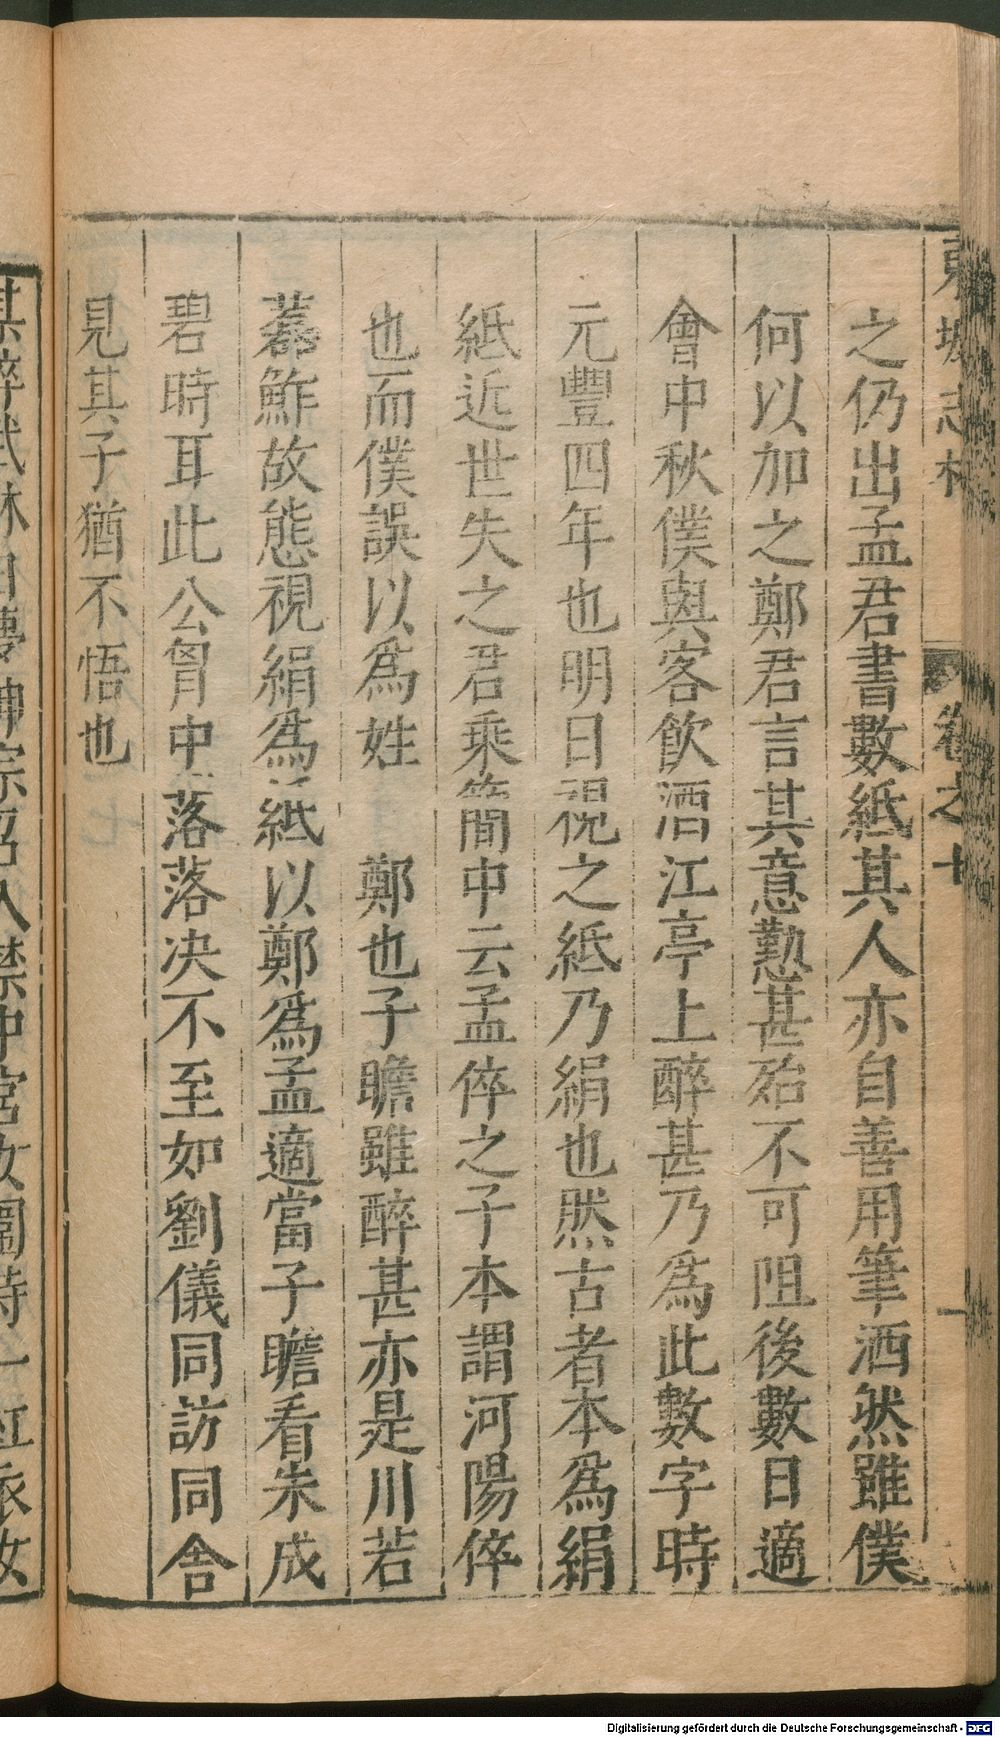 東坡志林 卷之十 一
之仍出孟君書數紙其人亦自善用筆洒然雖僕
何以加之鄭君言其意懃甚殆不可阻後數日適
會中秋僕與客飲酒江亭上醉甚乃爲此數字時
元豐四年也明日視之紙乃絹也然古者本爲絹
紙近世失之君乘簡中云孟倅之子本謂河陽倅
也而僕誤以爲姓 鄭也子瞻雖醉甚亦是川若
鮓故態視絹爲紙以鄭爲孟適當子瞻看朱成
碧時耳此公胷中落落決不至如劉儀同訪同舍
見其子猶不悟也
宗召入禁中宮女圍侍一紅衣女
Digitalisierung gefördert durch die Deutsche Forschungsgemeinschaft - DFG